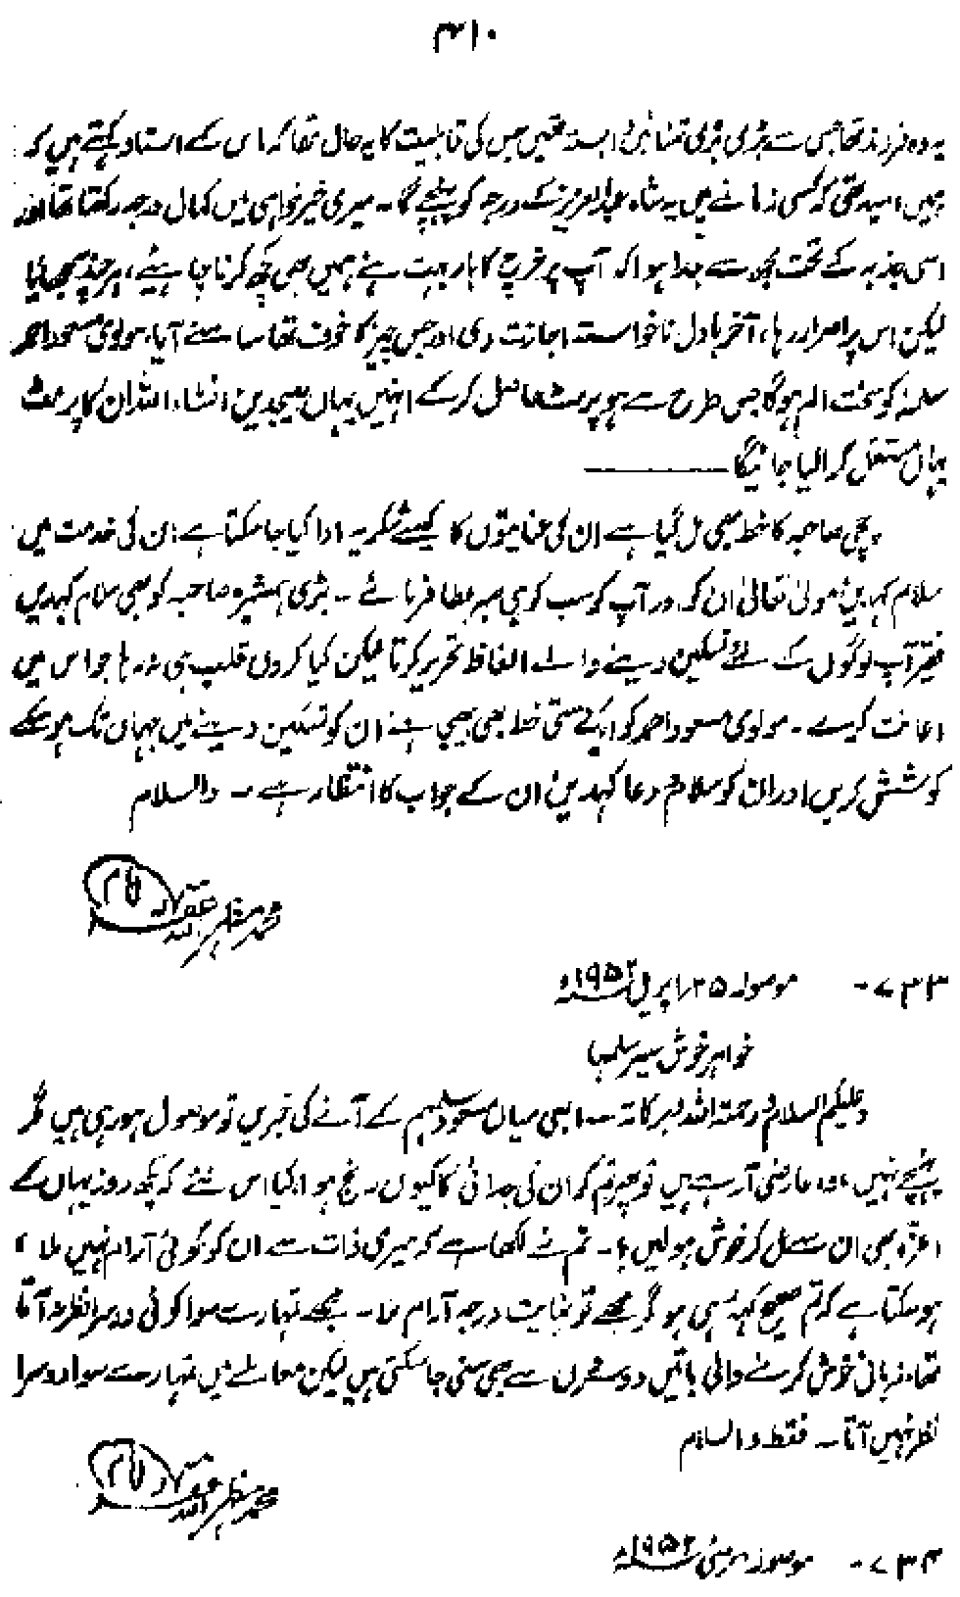 ۳۱۰
یہ وہ فرزند تھا جس سے بڑی بڑی تمنائیں وابستہ تھیں جس کی قابلیت کا یہ حال تھا کہ اس کے استاد کہتے ہیں کہ
ہمیں امید تھی کہ کسی زمانے میں یہ شاہ عبدالعزیز کے درجہ کو پہنچے گا۔ میری خیر خواہی میں کمال درجہ رکھتا تھا اور
اسی جذبہ کے تحت مجھ سے جدا ہوا کہ آپ پر خرچ کا بار بہت ہے ہمیں بھی کچھ کرنا چاہیئے، ہر چند سمجھایا
لیکن اس پر اصرار رہا، آخر بادل ناخواستہ اجازت دی اور جس چیز کا خوف تھا سامنے آیا، مولوی مسعود احمد
سلمہٗ کو سخت الم ہوگا جس طرح سے ہو پرمٹ حاصل کرکے انہیں یہاں بھیجدیں انشاء اللہ ان کا پرمٹ
یہاں مستقل کرالیا جائیگا ـــــــــــ
چچی صاحبہ کا خط بھی مل گیا ہے ان کی عنایتوں کا کیسے شکریہ ادا کیا جا سکتا ہے ان کی خدمت میں
سلام کہدیں مولیٰ تعالیٰ ان کو اور آپ کو سب کو ہی صبر عطا فرمائے ۔ بڑی ہمشیرہ صاحبہ کو بھی سلام کہدیں
فقیر آپ لوگوں کے لئے تسکین دینے والے الفاظ تحریر کرتا لیکن کیا کروں قلب ہی نہ رہا جو اس میں
اعانت کرے ۔ مولوی مسعود احمد کو ایک خط بھی بھیجا ہے ان کو تسکین دینے میں جہاں تک ہو سکے
کوشش کریں اور ان کو سلام و دعا کہدیں ان کے جواب کا انتظار ہے ۔ والسلام
محمد مظہر اللہ غفرلہ
۳۳ ۷۔ موصولہ ۲۵؍اپریل ۱۹۵۲ء
خواہر خوش سیر سلمہا
وعلیکم السلام و رحمۃ اللہ و برکاتہ ۔ ابھی میاں مسعود سلمہم کے آنے کی خبریں تو موصول ہو رہی ہیں مگر
پہنچے نہیں، وہ عارضی آرہے ہیں تو پھر تم کو ان کی جدائی کا کیوں رنج ہوا، کیا اس لئے کہ کچھ روز یہاں کے
اعزہ بھی ان سے مل کر خوش ہولیں؟ ۔ تم نے لکھا ہے کہ میری ذات سے ان کو کوئی آرام نہیں ملا،
ہو سکتا ہے کہ تم صحیح کہہ رہی ہو مگر مجھے تو نہایت درجہ آرام ملا ۔ مجھے تمہارے سوا کوئی دوسرا نظر نہ آتا
تھا، زبانی خوش کرنے والی باتیں دوسروں سے بھی سنی جا سکتی ہیں لیکن معاملے میں تمہارے سوا دوسرا
نظر نہیں آتا ۔ فقط والسلام
محمد مظہر اللہ غفرلہ
۳۴ ۷۔ موصولہ ۳؍مئی ۱۹۵۲ء